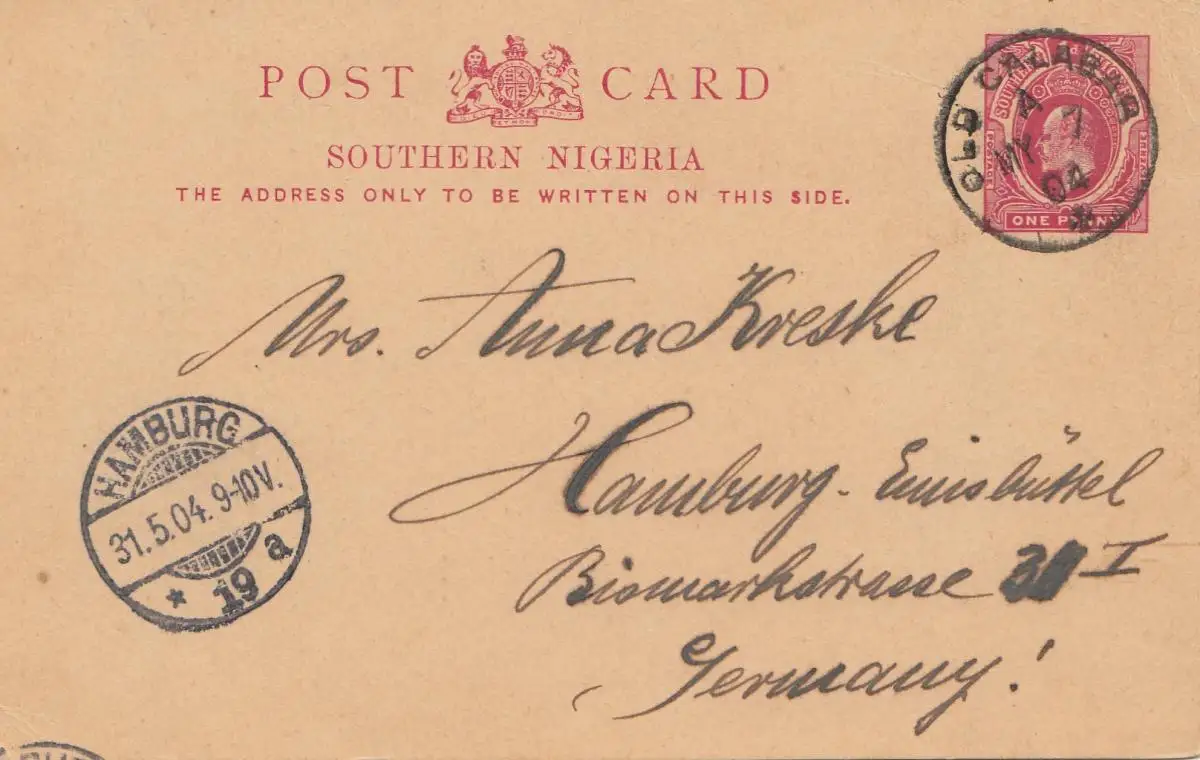 POST CARD
SOUTHERN NIGERIA
THE ADDRESS ONLY TO BE WRITTEN ON THIS SIDE.
OLD CALABAR
A
MY 7
04
POSTAGE
ONE PENNY
Mrs. Anna Kreske
Hamburg-Eimsbüttel
Bismarkstrasse I
Germany!
HAMBURG
31.5.04. 9-10V.
* 19 a